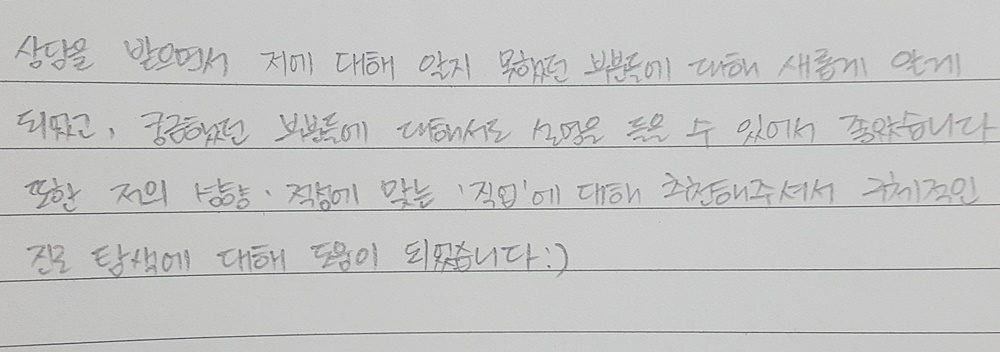 상담을 받으면서 저에 대해 알지 못했던 부분들에 대해 새롭게 알게
되었고, 궁금했던 부분들에 대해서도 설명을 들을 수 있어서 좋았습니다
또한 저의 성향·적성에 맞는 '직업'에 대해 추천해주셔서 구체적인
진로 탐색에 대해 도움이 되었습니다:)